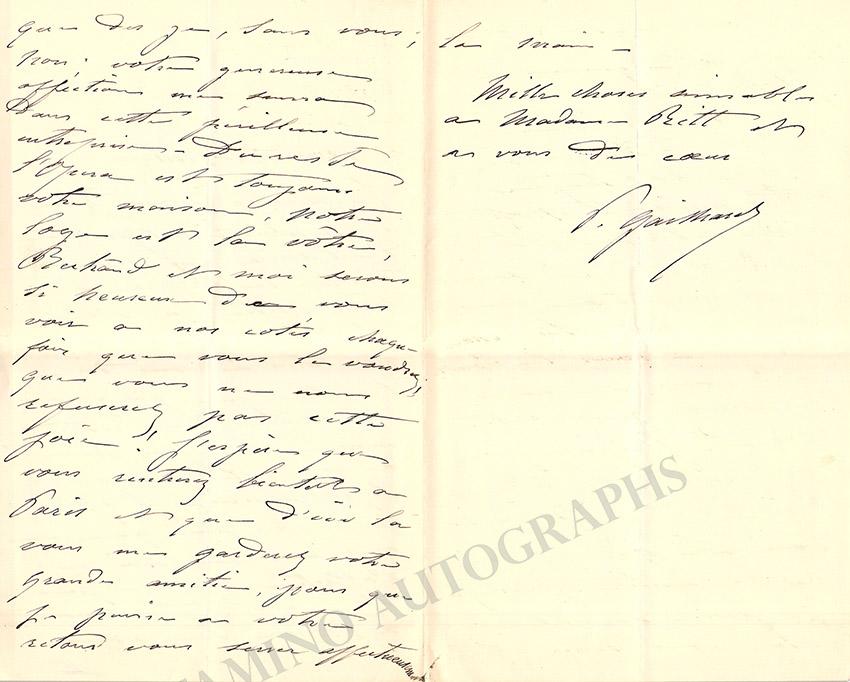 que des je, sans vous,
non; votre généreuse
affection me suivra
dans cette périlleuse
entreprise. Du reste
l'Opéra est toujours
votre maison, notre
loge est la vôtre,
Bertrand et moi serons
si heureux de vous
voir a nos cotés chaque
fois que vous le voudrez,
que vous ne nous
refuserez pas cette
joie! J'espère que
vous rentrerez bientôt a
Paris et que d'ici là
vous me garderez votre
grande amitié, pour que
je puisse a votre
retour vous serrer affectueusement
la main -
Mille choses aimables
a Madame Ritt et
a vous de cœur
P. Gailhard
TAMINO AUTOGRAPHS